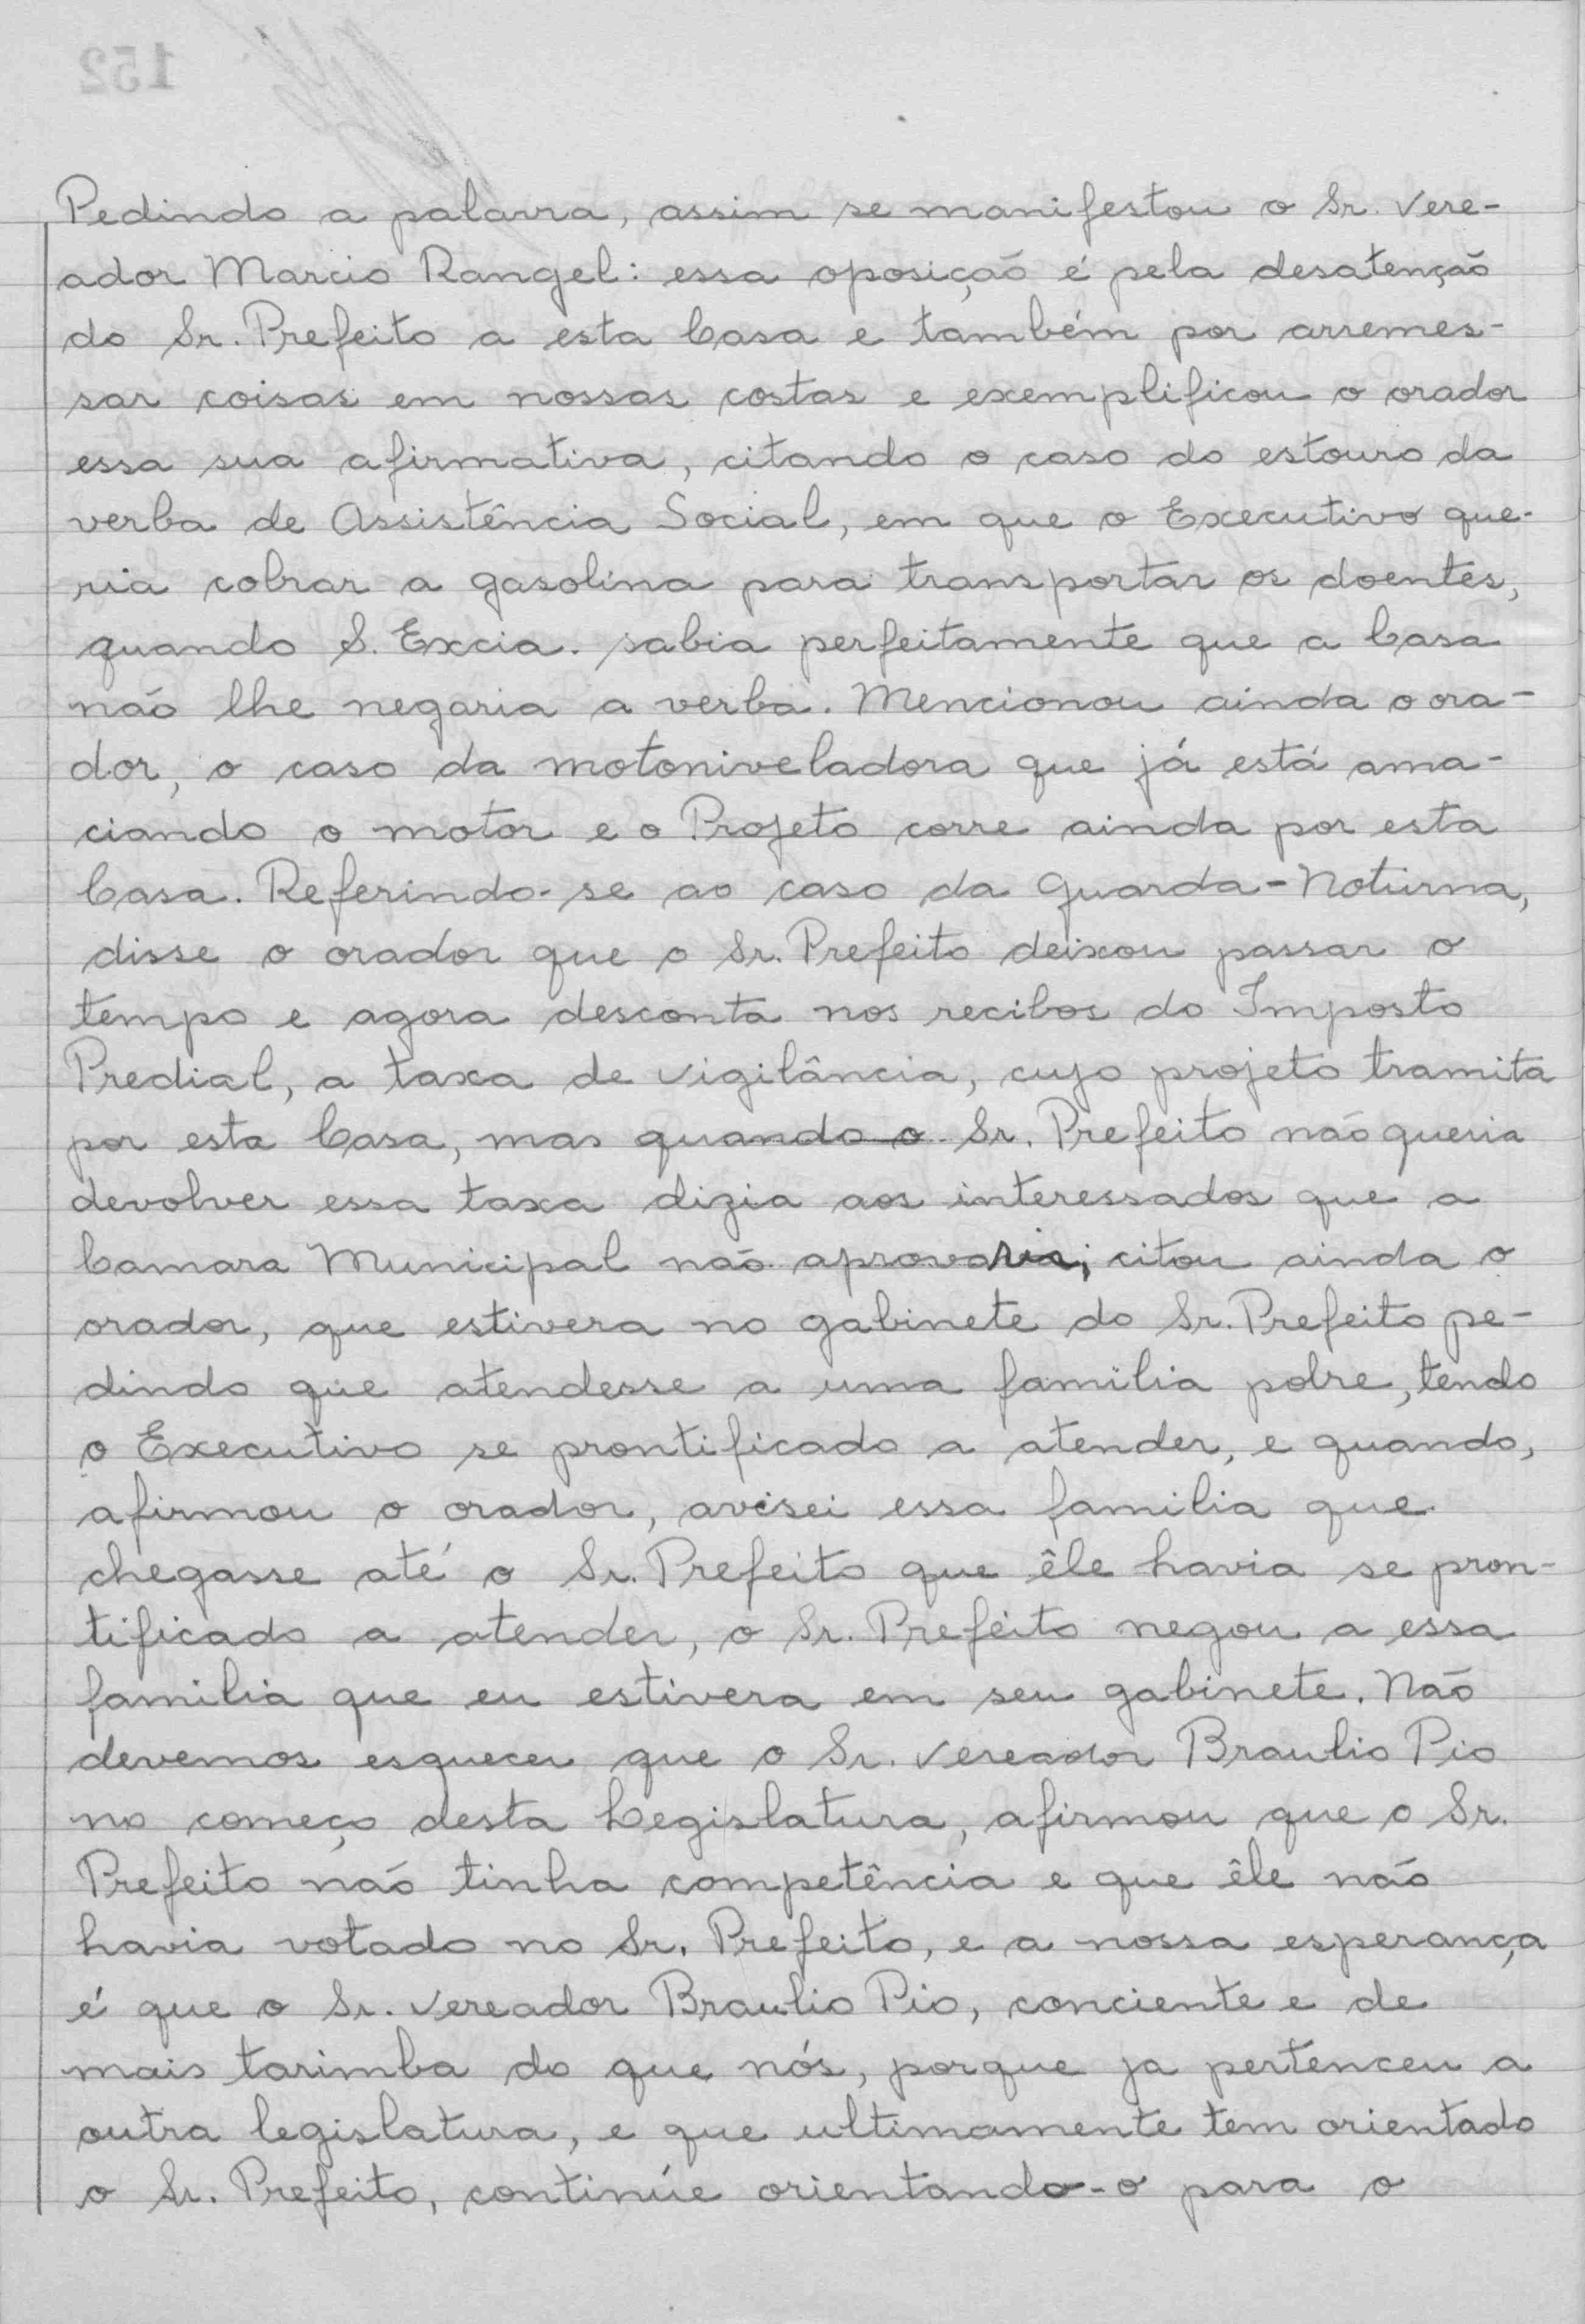 Pedindo a palavra, assim se manifestou o Sr. Vere-
ador Marcio Rangel: essa oposição é pela desatenção
do Sr. Prefeito a esta Casa e também por arremes-
sar coisas em nossas costas e exemplificou o orador
essa sua afirmativa, citando o caso do estouro da
verba de Assistência Social, em que o Executivo que-
ria cobrar a gasolina para transportar os doentes,
quando S. Excia. sabia perfeitamente que a Casa
não lhe negaria a verba. Mencionou ainda o ora-
dor, o caso da motoniveladora que já está ama-
ciando o motor e o Projeto corre ainda por esta
Casa. Referindo-se ao caso da Guarda-Noturna,
disse o orador que o Sr. Prefeito deixou passar o
tempo e agora desconta nos recibos do Imposto
Predial, a taxa de vigilância, cujo projeto tramita
por esta Casa, mas quando o Sr. Prefeito não queria
devolver essa taxa dizia aos interessados que a
Camara Municipal não aprovaria; citou ainda o
orador, que estivera no gabinete do Sr. Prefeito pe-
dindo que atendesse a uma familia pobre, tendo
o Executivo se prontificado a atender, e quando,
afirmou o orador, avisei essa familia que
chegasse até o Sr. Prefeito que êle havia se pron-
tificado a atender, o Sr. Prefeito negou a essa
familia que eu estivera em seu gabinete. Não
devemos esquecer que o Sr. Vereador Braulio Pio
no começo desta Legislatura, afirmou que o Sr.
Prefeito não tinha competência e que êle não
havia votado no Sr. Prefeito, e a nossa esperança
é que o Sr. Vereador Braulio Pio, conciente e de
mais tarimba do que nós, porque ja pertenceu a
outra legislatura, e que ultimamente tem orientado
o Sr. Prefeito, continúe orientando-o para o